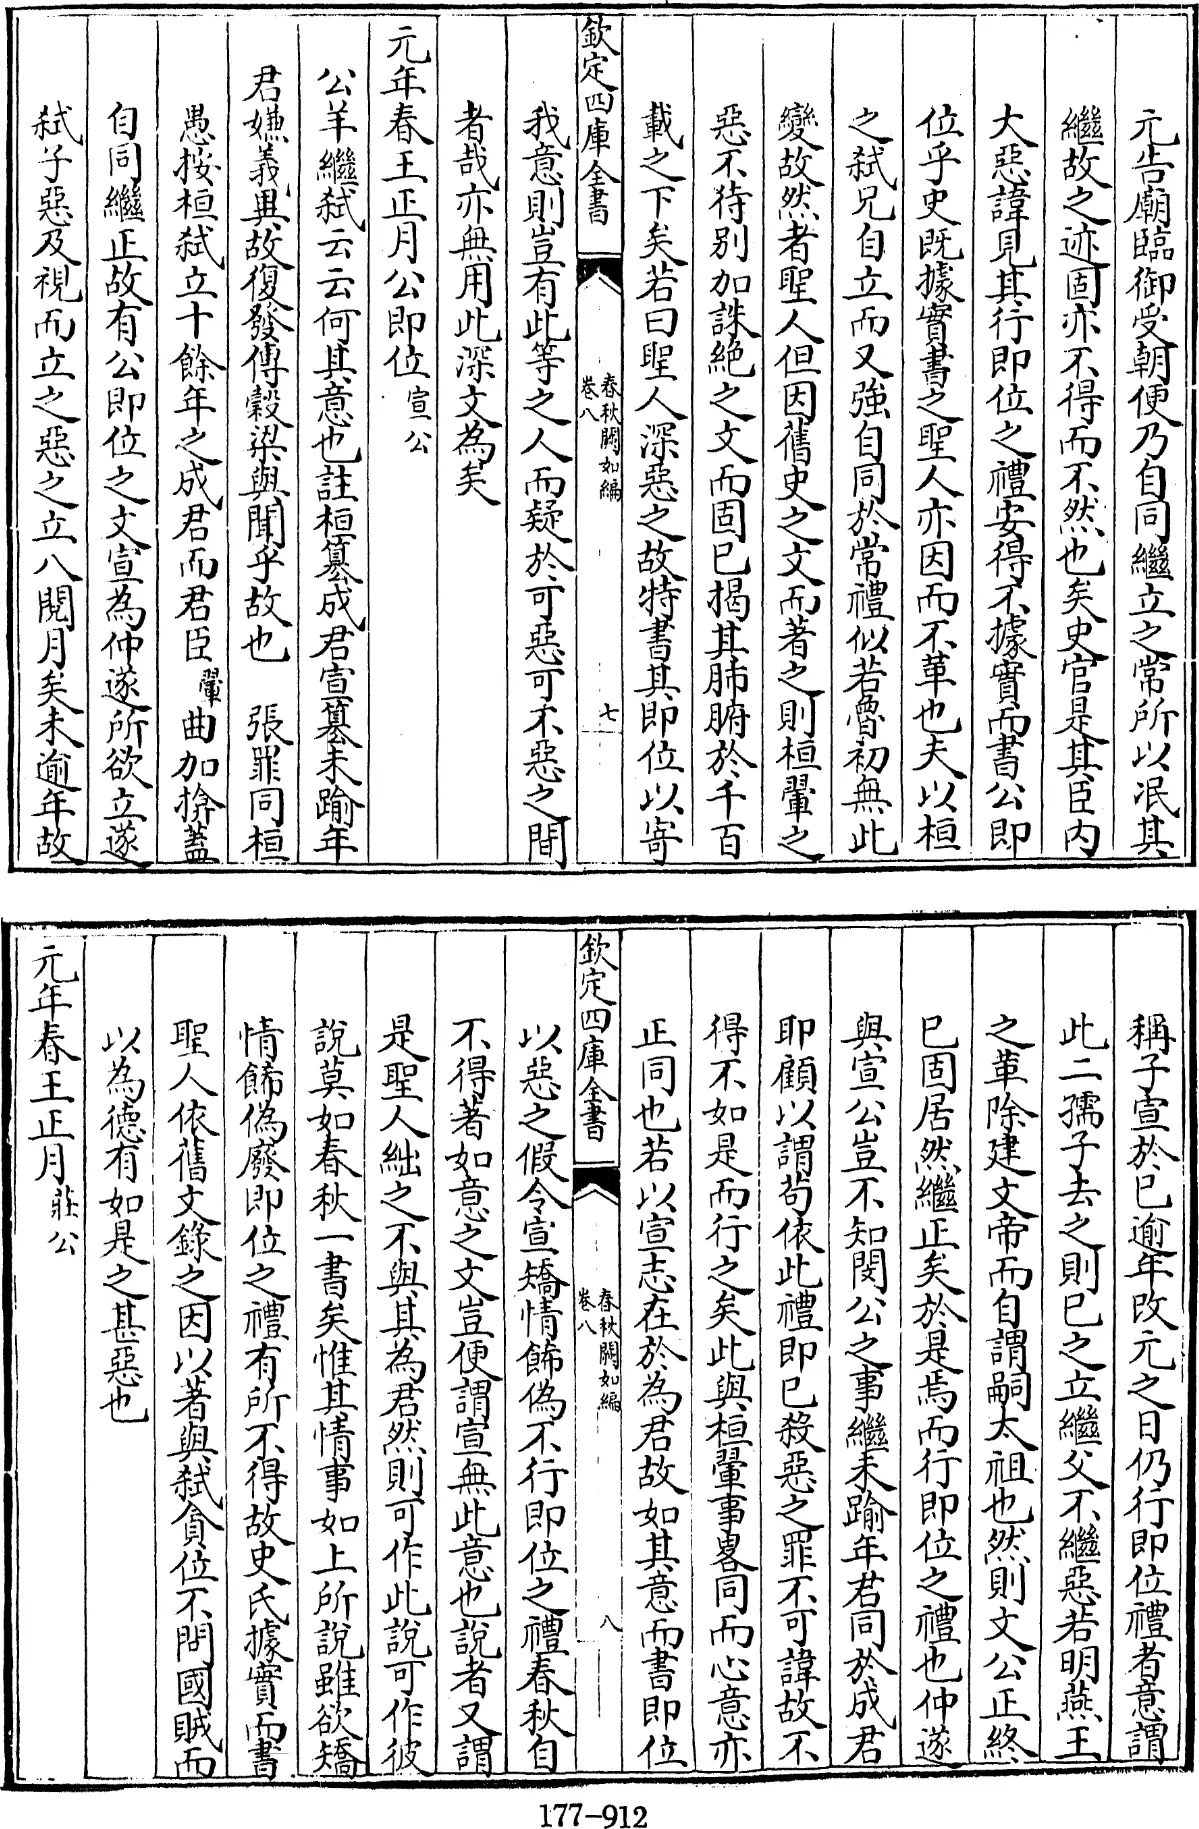 元告廟臨御受朝便乃自同繼立之常所以泯其
繼故之迹固亦不得而不然也矣史官是其臣内
大惡諱見其行即位之禮安得不據實而書公即
位乎史既據實書之聖人亦因而不革也夫以桓
之弑兄自立而又強自同於常禮似若魯初無此
變故然者聖人但因舊史之文而著之則桓翬之
惡不待别加誅絶之文而固已揭其肺腑於千百
載之下矣若曰聖人深惡之故特書其即位以寄
欽定四庫全書
春秋闕如編
卷八
七
我意則豈有此等之人而疑於可惡可不惡之間
者哉亦無用此深文為矣
元年春王正月公即位宣公
公羊繼弑云云何其意也註桓簒成君宣簒未踰年
君嫌義異故復發傳穀梁與聞乎故也　張罪同桓
愚按桓弑立十餘年之成君而君臣翬曲加揜葢
自同繼正故有公即位之文宣為仲遂所欲立遂
弑子惡及視而立之惡之立八閱月矣未逾年故
稱子宣於已逾年改元之日仍行即位禮者意謂
此二孺子去之則已之立繼父不繼惡若明燕王
之革除建文帝而自謂嗣太祖也然則文公正終
已固居然繼正矣於是焉而行即位之禮也仲遂
與宣公豈不知閔公之事繼未踰年君同於成君
耶顧以謂苟依此禮即已殺惡之罪不可諱故不
得不如是而行之矣此與桓翬事畧同而心意亦
正同也若以宣志在於為君故如其意而書即位
欽定四庫全書
春秋闕如編
卷八
八
以惡之假令宣矯情飾偽不行即位之禮春秋自
不得著如意之文豈便謂宣無此意也説者又謂
是聖人絀之不與其為君然則可作此説可作彼
説莫如春秋一書矣惟其情事如上所説雖欲矯
情飾偽廢即位之禮有所不得故史氏據實而書
聖人依舊文錄之因以著與弑貪位不問國賊而
以為德有如是之甚惡也
元年春王正月莊公
177-912